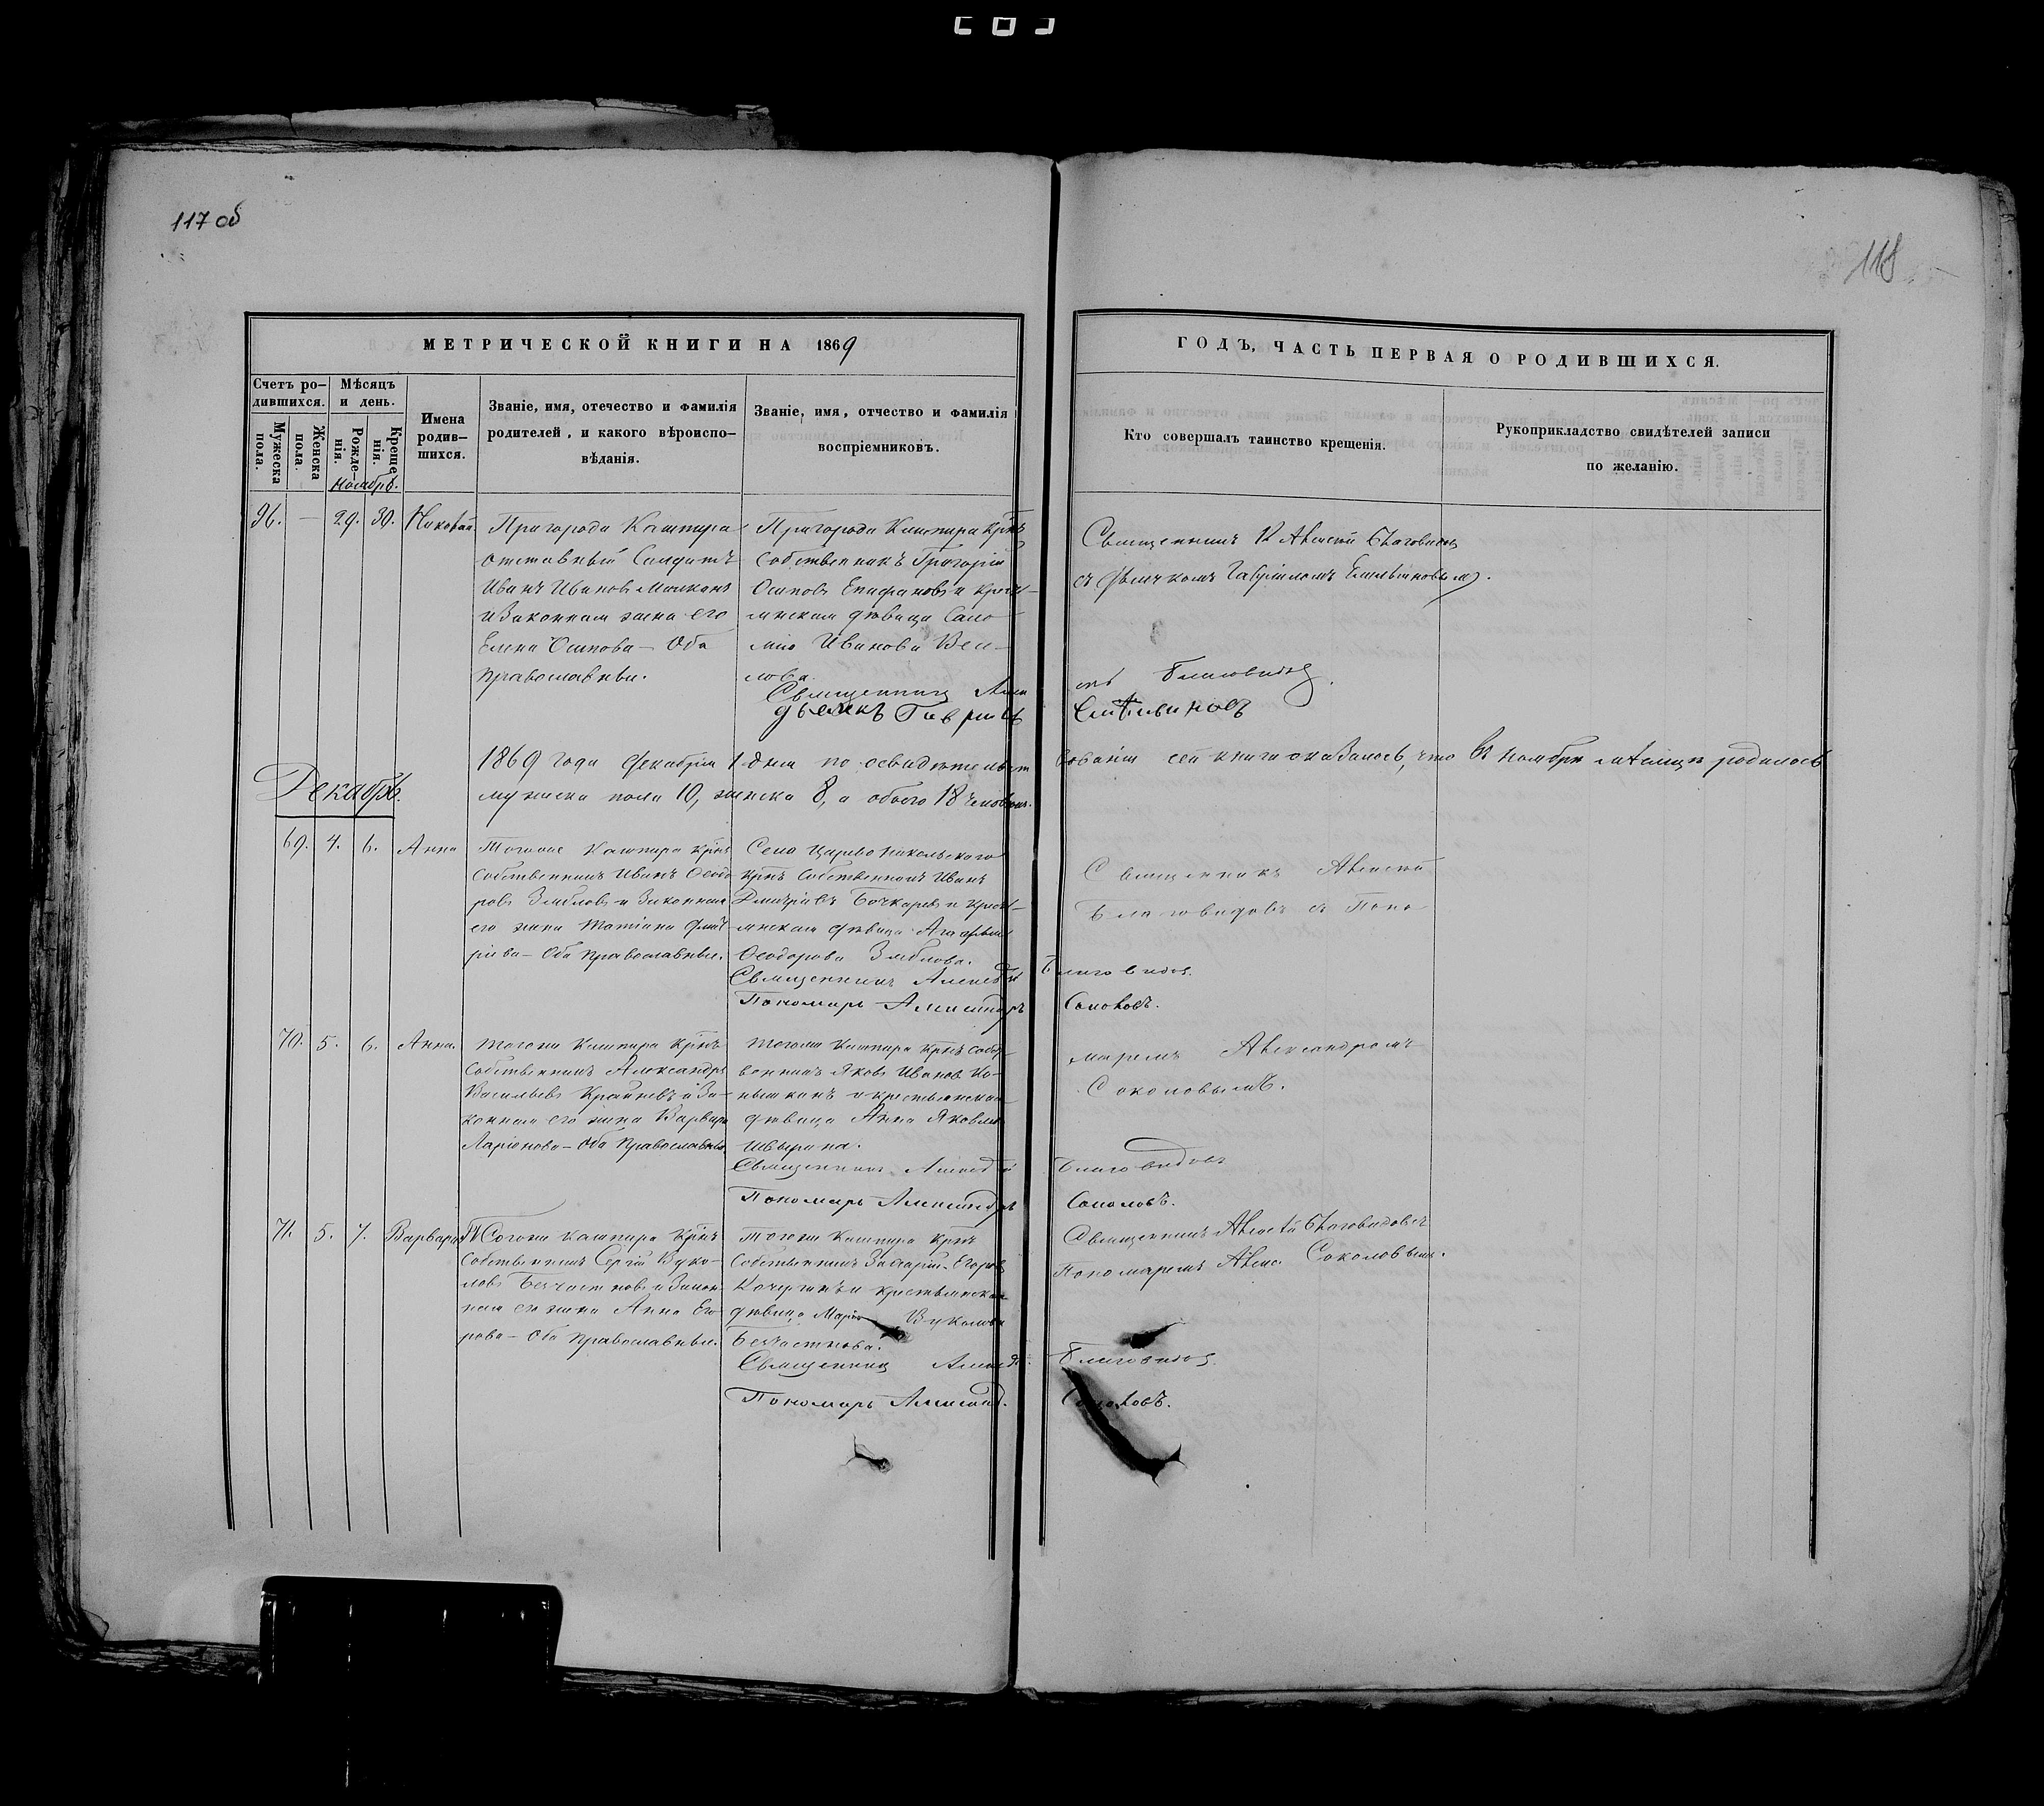 117 об
118
МЕТРИЧЕСКОЙ КНИГИ НА 1869
ГОДЪ, ЧАСТЬ ПЕРВАЯ О РОДИВШИХСЯ.
Счетъ ро-
дившихся.
Мужеска
пола.
Женска
пола.
Мѣсяцъ
и день.
Рожде-
нія.
Креще-
нія.
Имена
родив-
шихся.
Званіе, имя, отечество и фамилія
родителей, и какого вѣроиспо-
вѣданія.
Званіе, имя, отчество и фамилія
воспріемниковъ.
Кто совершалъ таинство крещенія.
Рукоприкладство свидѣтелей записи
по желанію.
Ноябрь.
96. — 29. 30.
Пригорода Кашпира
отставный Солдатъ
Иванъ Ивановъ
и законная жена его
Елена Осипова — Оба
православные.
Пригорода Кашпира крнъ
Собственникъ Григорій
Осиповъ Епифановъ и кресть-
янская дѣвица Соло-
мія Иванова
Священникъ Алек
дьячекъ Гаврилъ
Священникъ Алексѣй Благовидовъ
съ дьячкомъ Гавріиломъ Емельяновымъ.
сѣй Благовидовъ.
Емельяновъ
1869 года Декабря 1 дня по освидѣтельст
вованіи сей книги оказалось, что въ Ноябрѣ мѣсяцѣ родилось
мужеска пола 10, женска 8, а обоего 18 человѣкъ.
Декабрь.
69. 4. 6. Анна
Тогоже Кашпира крнъ
Собственникъ Иванъ Ѳеодо
ровъ Зябловъ и Законная
его жена Татіана Дмит
ріева — Оба православные.
Села Царево Никольскаго
крнъ Собственникъ Иванъ
Дмитріевъ Бочкаревъ и кресть-
янская дѣвица Агафья
Ѳеодорова Зяблова.
Священникъ Алексѣй
Пономарь Александръ
Священникъ Алексѣй
Благовидовъ съ Поно-
Благовидовъ.
Соколовъ.
70. 5. 6. Анна.
Тогоже Кашпира крнъ
Собственникъ Александръ
Васильевъ Крайневъ и За-
конная его жена Варвара
Ларіонова — Оба Православные
Тогоже Кашпира крнъ собст-
венникъ Яковъ Ивановъ
и крестьянская
дѣвица Анна Яковлева
Швырина.
Священникъ Алексѣй
Пономарь Александръ
маремъ Александромъ
Соколовымъ.
Благовидовъ
Соколовъ.
71. 5. 7. Варвара
Тогоже Кашпира крнъ
Собственникъ Сергій Вуко-
ловъ Безчастновъ и Закон-
ная его жена Анна Его-
рова — Оба православные.
Тогоже Кашпира крнъ
Собственникъ Захарій Егоровъ
Кочергинъ и крестьянская
дѣвица Марія Вуколова
Безчастнова.
Священникъ Алексѣй
Пономарь Александ.
Священникъ Алексѣй Благовидовъ
Пономаремъ Алекс. Соколовымъ.
Благовидовъ.
Соколовъ.